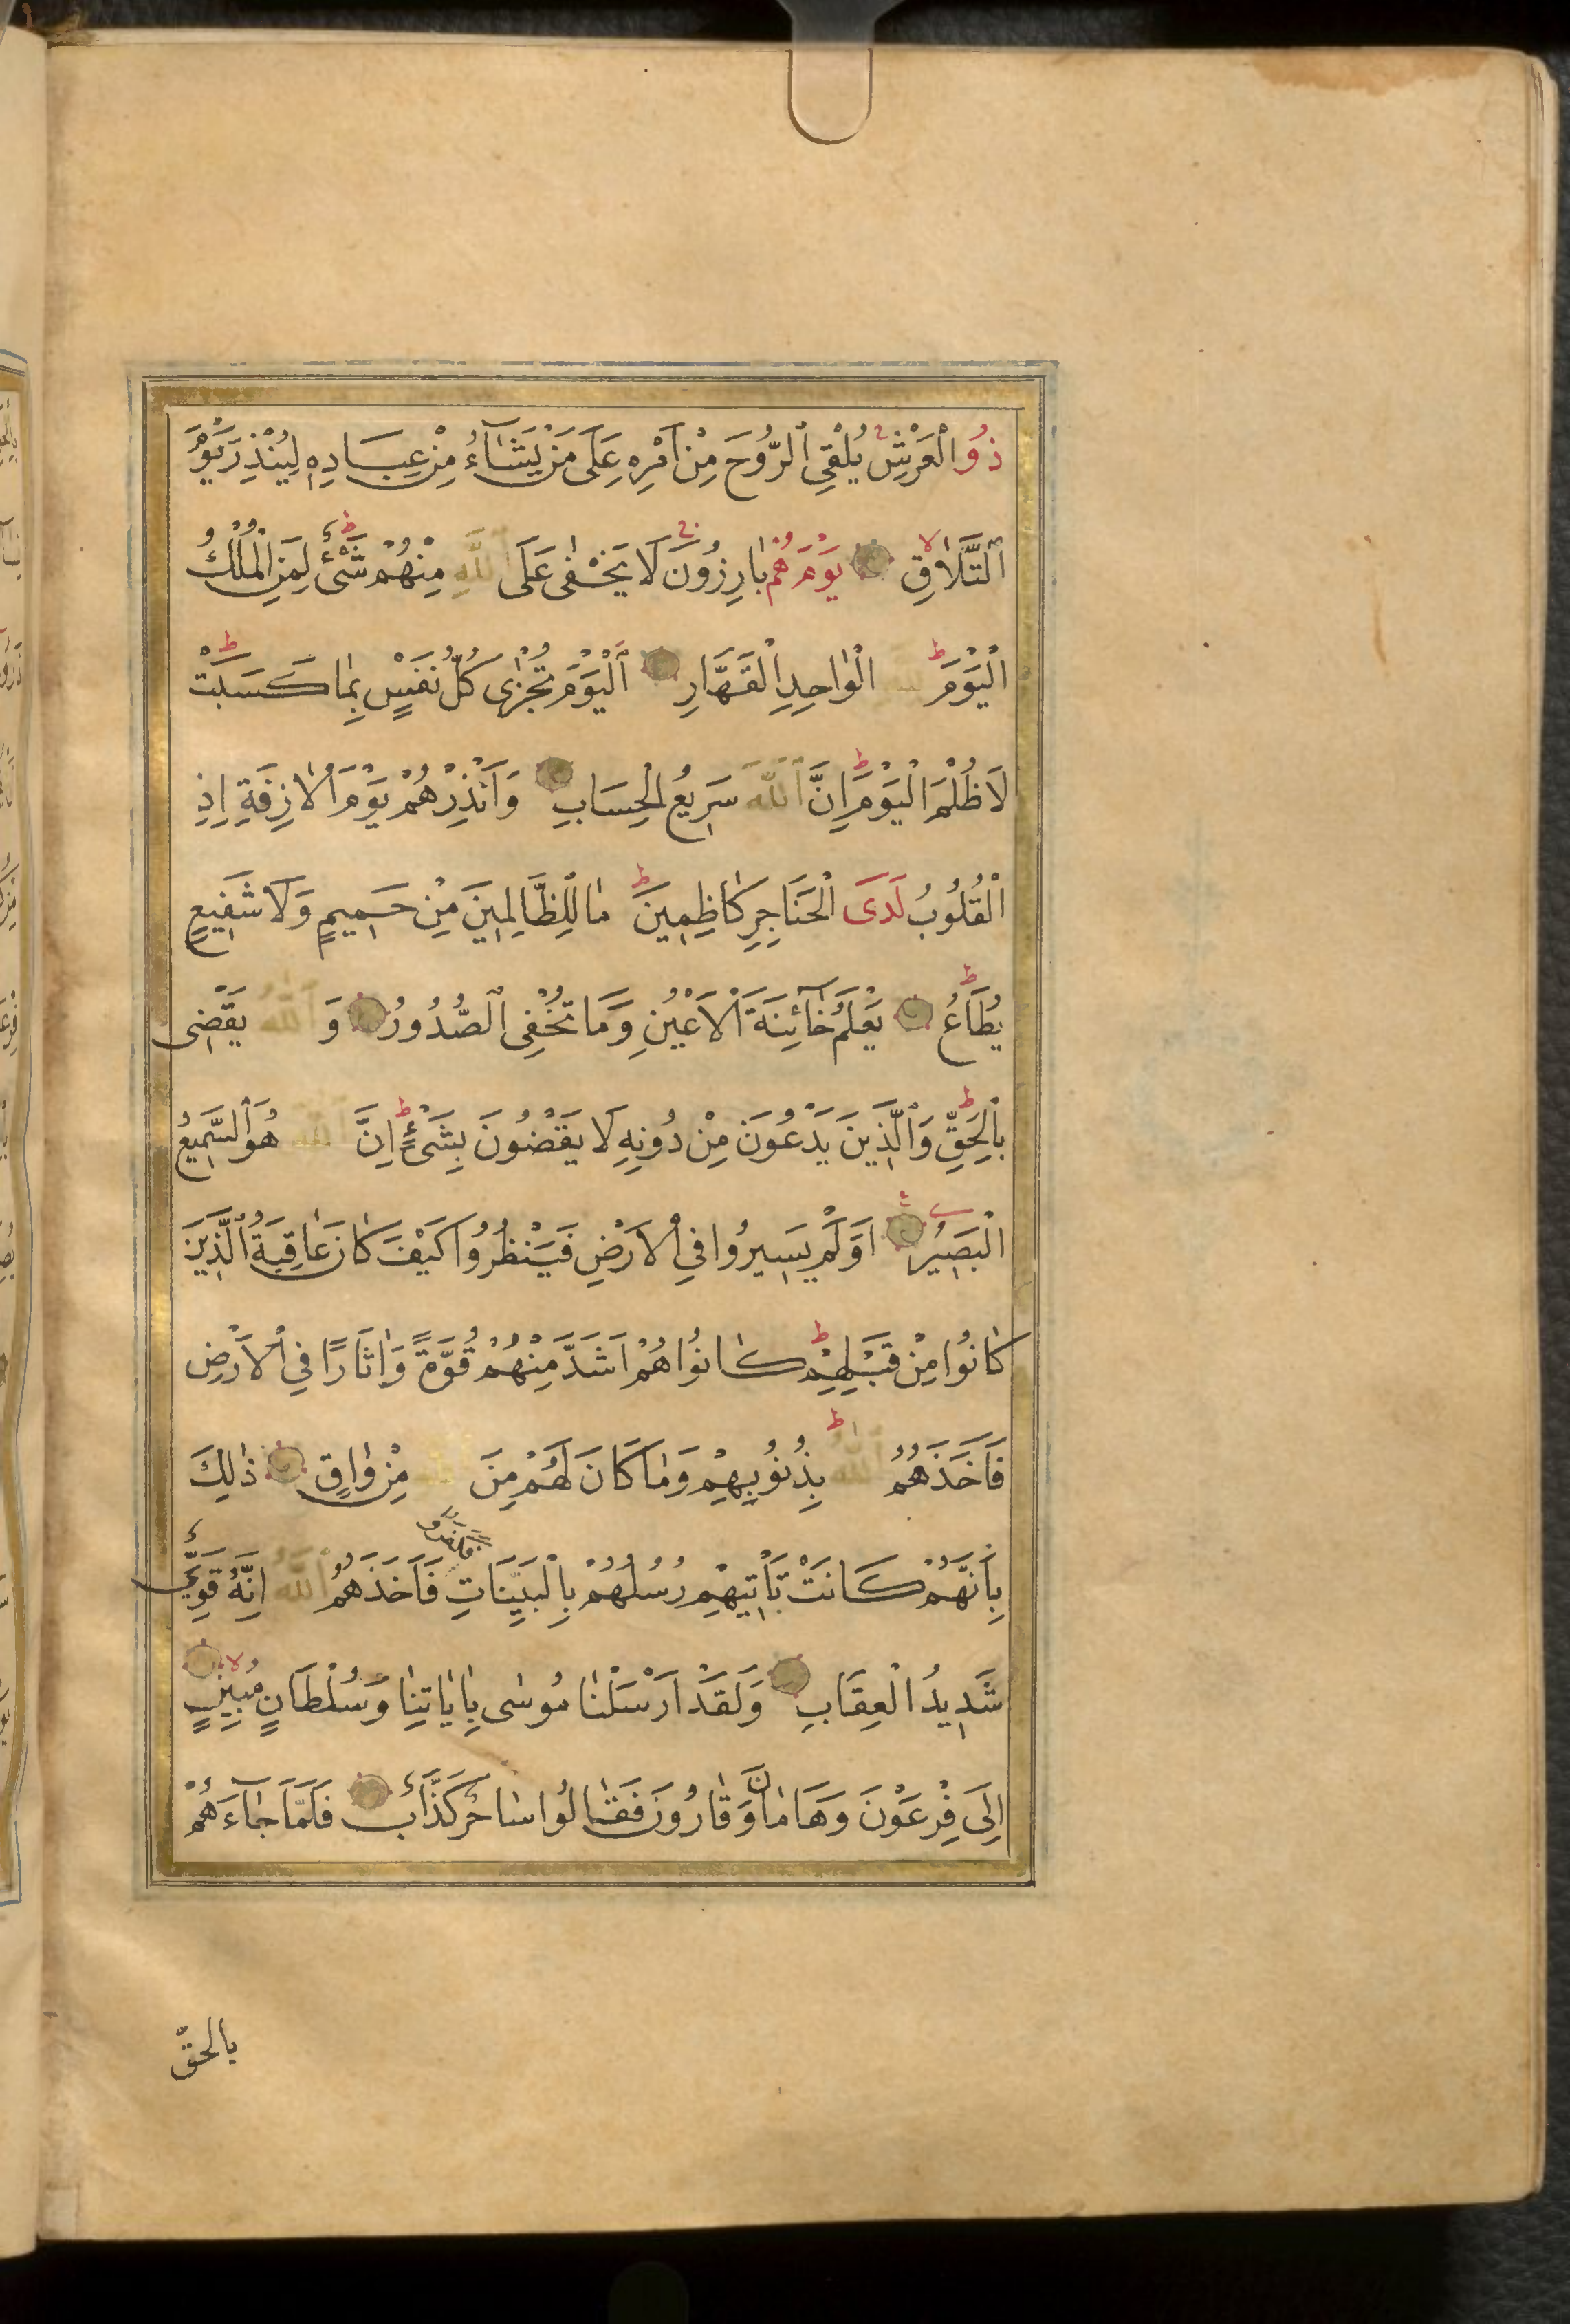 ذُو الْعَرْشِ يُلْقِي الرُّوحَ مِنْ اَمْرِهِ عَلَى مَنْ يَشَاءُ مِنْ عِبَادِهِ لِيُنْذِرَ يَوْمَ
التَّلَاقِ يَوْمَ هُمْ بَارِزُونَ لَا يَخْفٰى عَلَى اللّٰهِ مِنْهُمْ شَيْءٌ لِمَنِ الْمُلْكُ
الْيَوْمَ الْوَاحِدِ الْقَهَّارِ اَلْيَوْمَ تُجْزٰى كُلُّ نَفْسٍ بِمَا كَسَبَتْ
لَا ظُلْمَ الْيَوْمَ اِنَّ اللّٰهَ سَرِيعُ الْحِسَابِ وَاَنْذِرْهُمْ يَوْمَ الْاٰزِفَةِ اِذِ
الْقُلُوبُ لَدَى الْحَنَاجِرِ كَاظِمِينَ مَا لِلظَّالِمِينَ مِنْ حَمِيمٍ وَلَا شَفِيعٍ
يُطَاعُ يَعْلَمُ خَائِنَةَ الْاَعْيُنِ وَمَا تُخْفِي الصُّدُورُ وَ اللّٰهُ يَقْضِى
بِالْحَقِّ وَالَّذِينَ يَدْعُونَ مِنْ دُونِهِ لَا يَقْضُونَ بِشَيْءٍ اِنَّ اللّٰهَ هُوَ السَّمِيعُ
الْبَصِيرُ اَوَلَمْ يَسِيرُوا فِي الْاَرْضِ فَيَنْظُرُوا كَيْفَ كَانَ عَاقِبَةُ الَّذِينَ
كَانُوا مِنْ قَبْلِهِمْ كَانُوا هُمْ اَشَدَّ مِنْهُمْ قُوَّةً وَاٰثَارًا فِي الْاَرْضِ
فَاَخَذَهُمُ اللّٰهُ بِذُنُوبِهِمْ وَمَا كَانَ لَهُمْ مِنَ مِنْ وَاقٍ ذٰلِكَ
بِاَنَّهُمْ كَانَتْ تَأْتِيهِمْ رُسُلُهُمْ بِالْبَيِّنَاتِ فكفروا فَاَخَذَهُمُ اللّٰهُ اِنَّهُ قَوِيٌّ
شَدِيدُ الْعِقَابِ وَلَقَدْ اَرْسَلْنَا مُوسٰى بِاٰيَاتِنَا وَسُلْطَانٍ مُبِينٍ
اِلَى فِرْعَوْنَ وَهَامَانَ وَقَارُونَ فَقَالُوا سَاحِرٌ كَذَّابٌ فَلَمَّا جَاءَهُمْ
بالحقّ